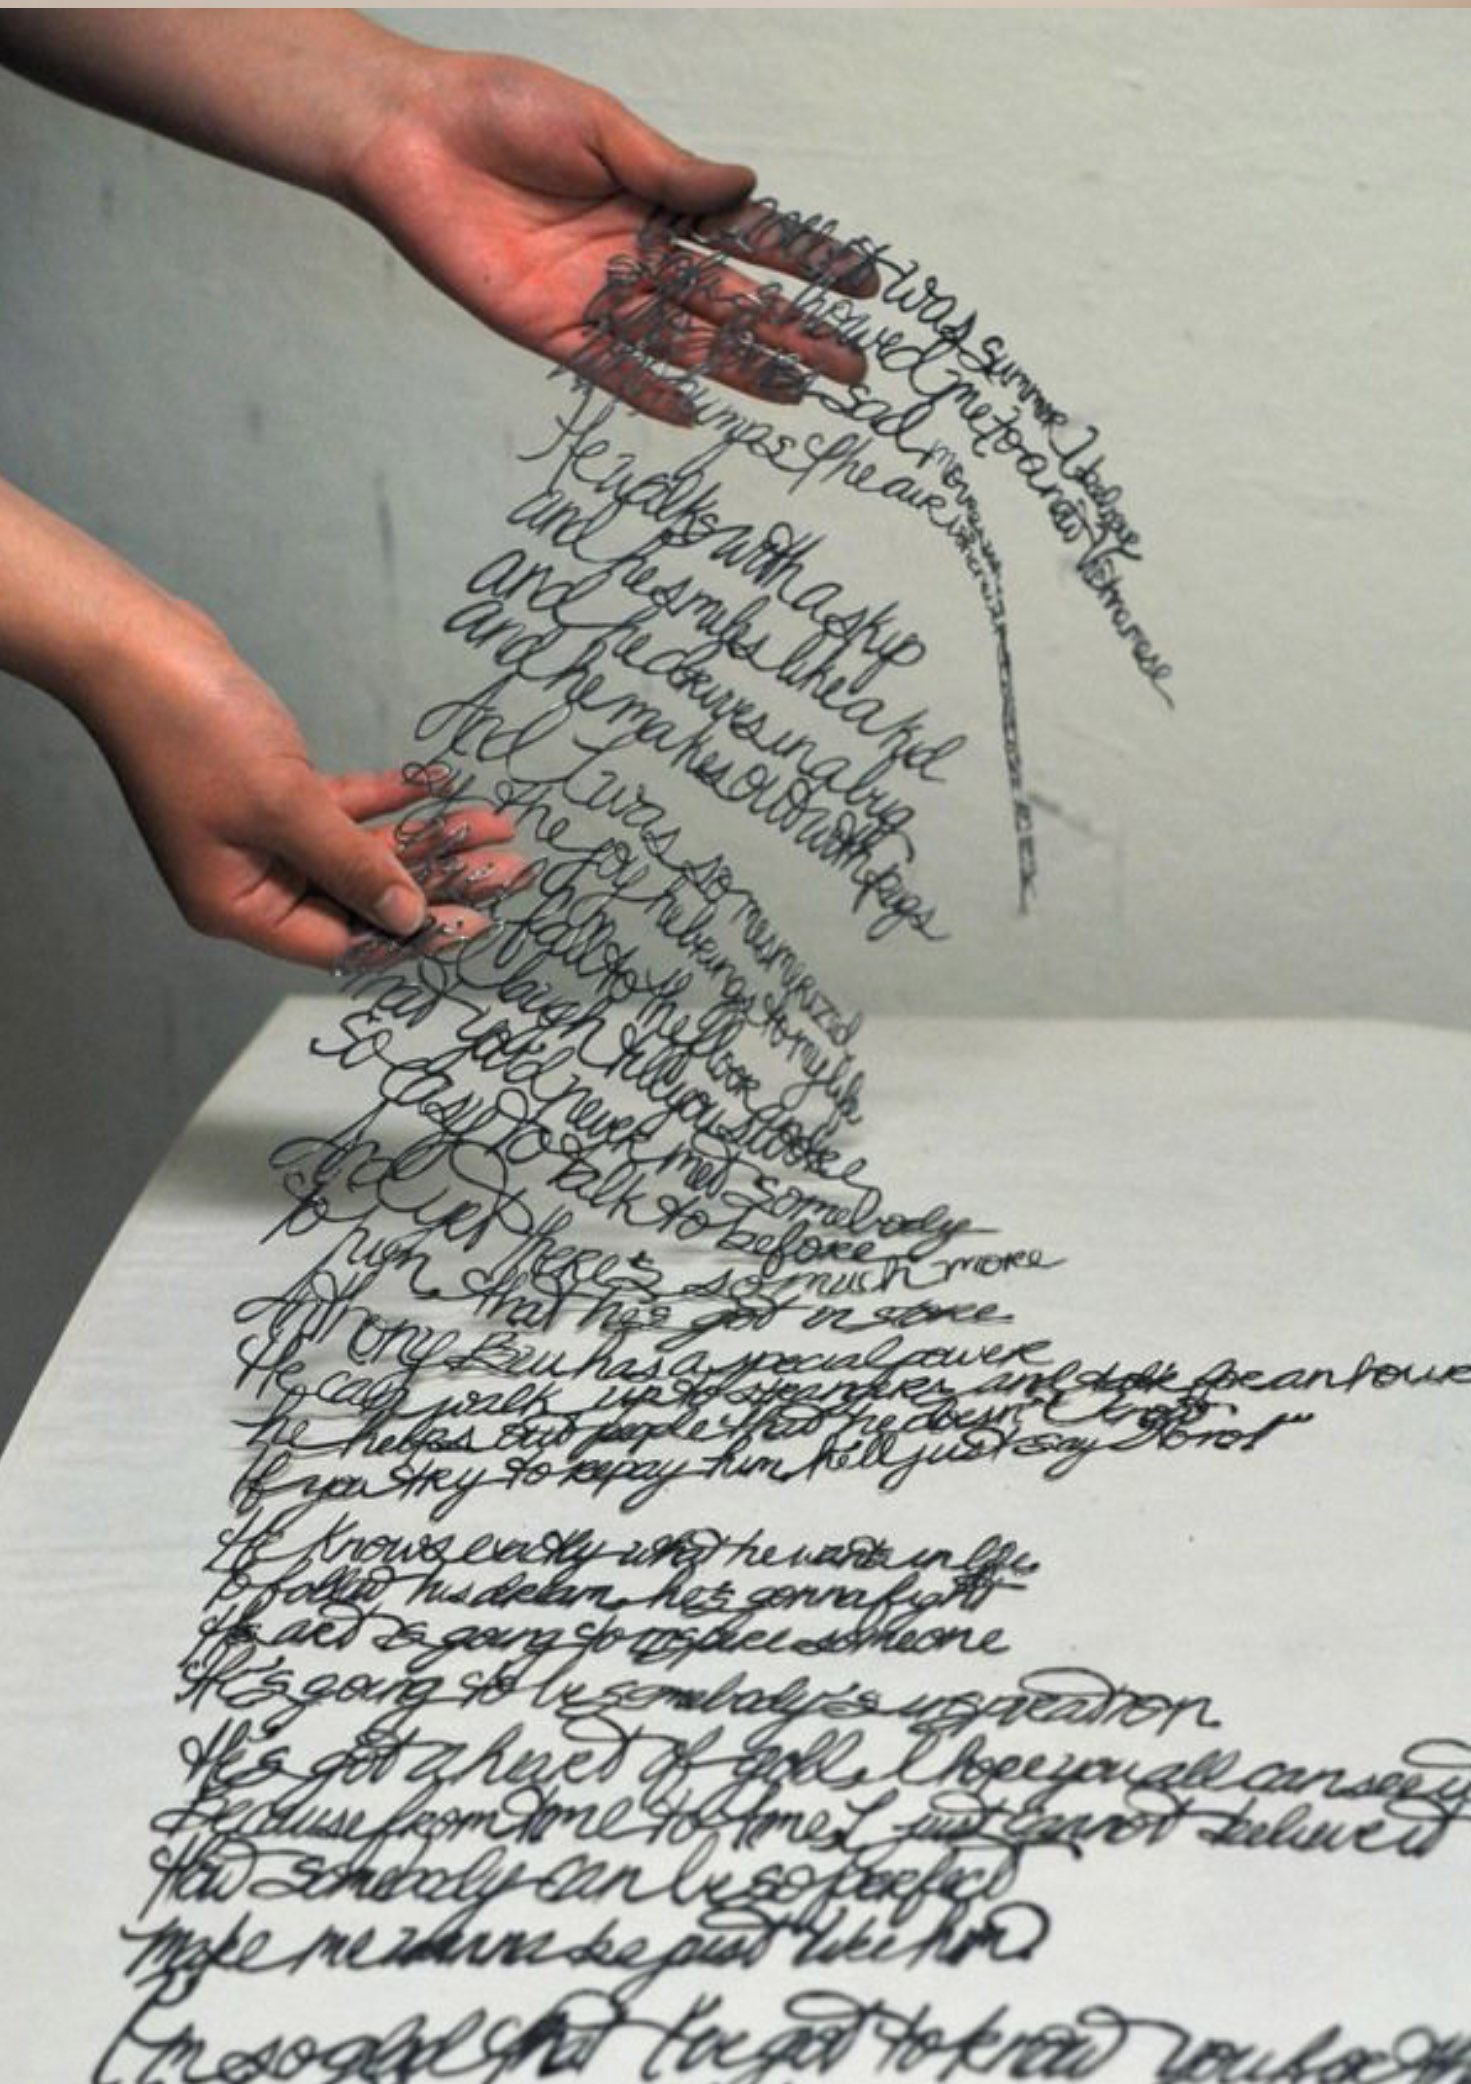 it was summer I
showed me to a
sad
bumps the air
He walks with a skip
and he smiles like a kid
and he drives in a bug
and he makes out with pugs
And I was so mesmyrized
by the joy he brings to my life
fall to the floor
laugh till you
that you'd never met somebody
So easy to talk to before
And yet there's so much more
To him, that he's got in store.
Anthony Bru has a special power
He can walk up to strangers and talk for an hour
he helps out people that he doesn't
If you try to repay him, he'll just say
He knows exactly what he wants in life.
To follow his dream, he's gonna fight
His art is going to inspire someone
He's going to be somebody's inspiration.
He's got a heart of gold, I hope you all can see it
Because from time to time I just cannot believe it
How somebody can be so perfect
Make me wanna be just like him.
I'm so glad that I've got to know you for